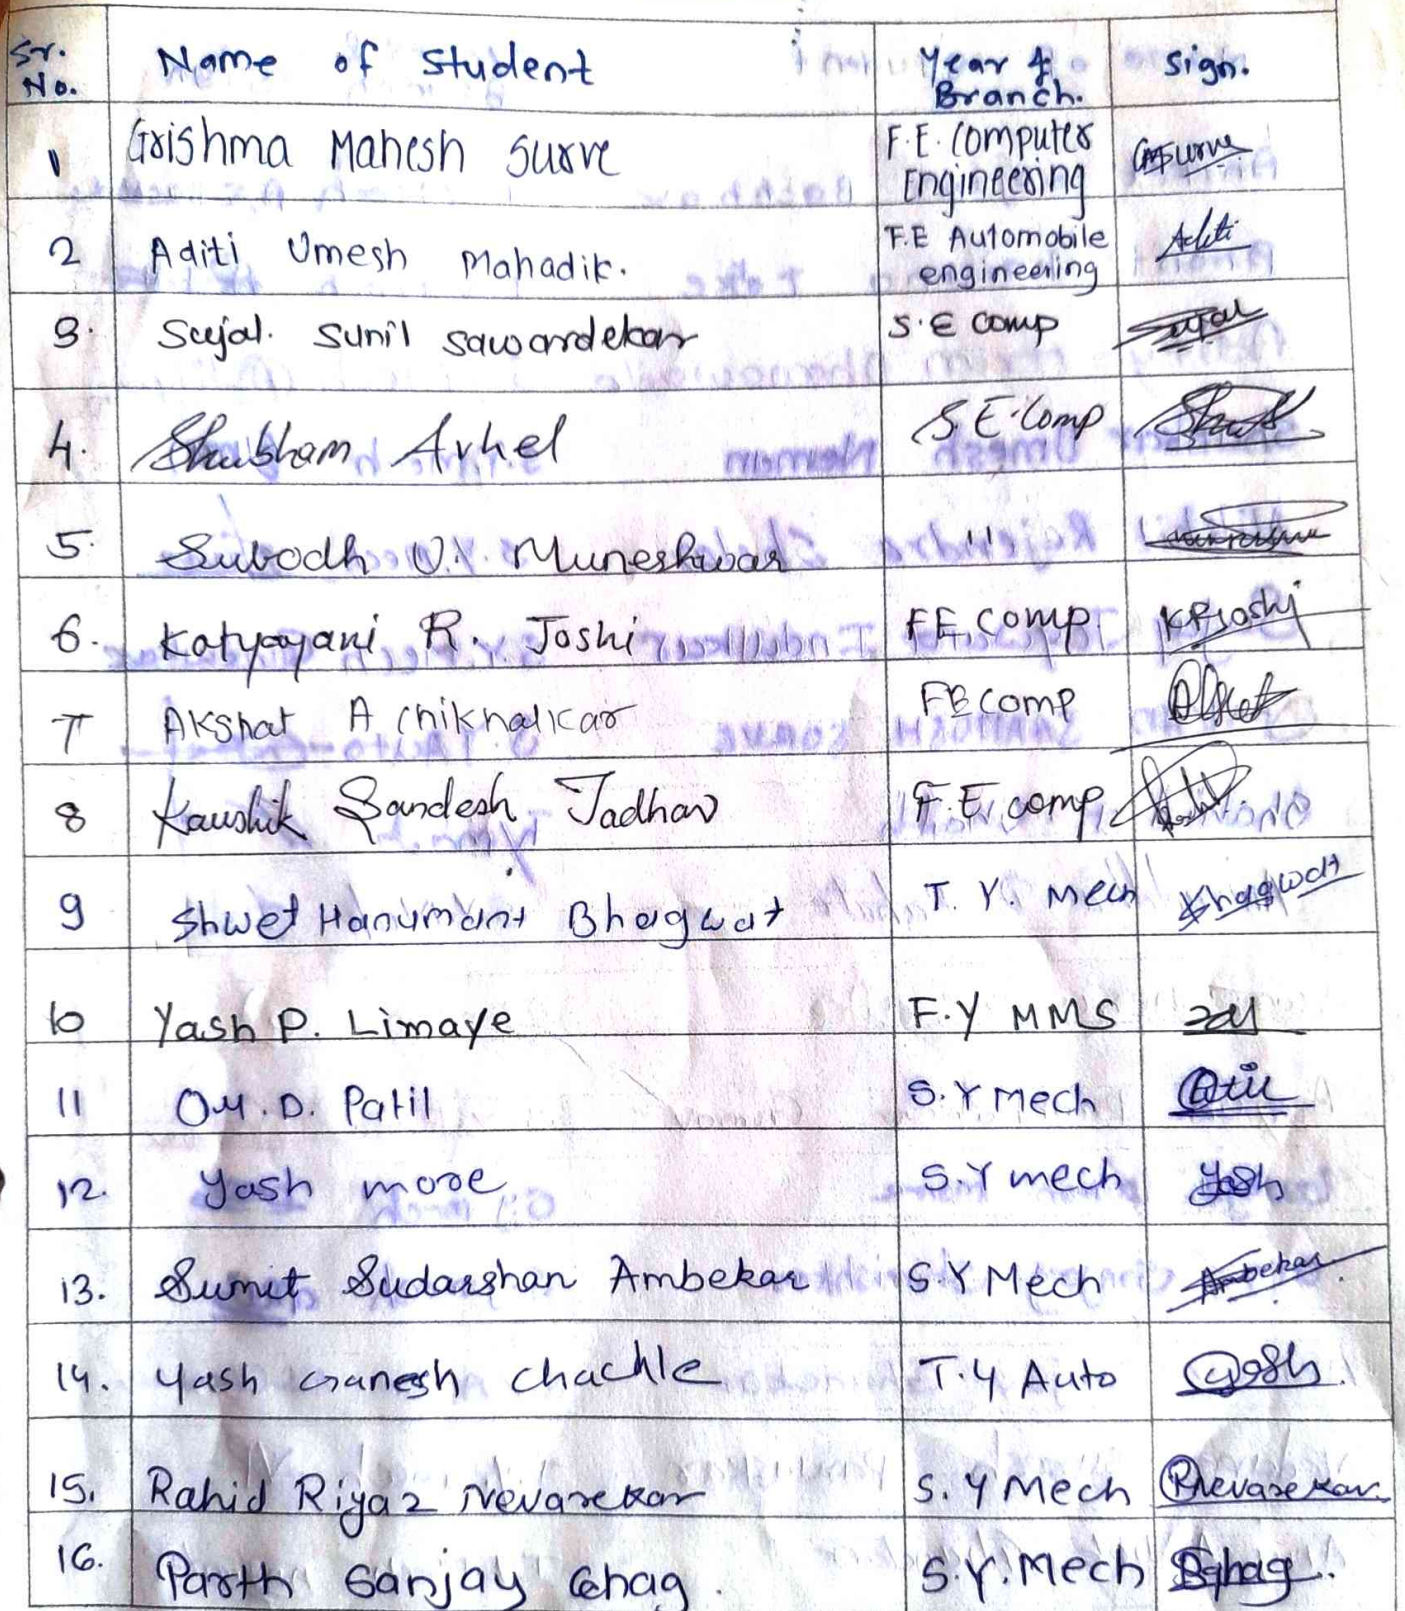 Sr. No. Name of Student Year & Branch. Sign.
1 Grishma Mahesh Surve F.E. Computer Engineering GMSurve
2 Aditi Umesh Mahadik. F.E Automobile engineering Aditi
3. Sujal. Sunil Sawardekar S.E Comp Sujal
4. Shubham Arhel S.E. Comp
5. Subodh U. Muneshwar "
6. Katyayani R. Joshi F.E. Comp. KRJoshi
7 Akshat A Chikhalkar FE comp
8 Kaushik Sandesh Jadhav F.E comp
9 Shwet Hanumant Bhagwat T.Y. Mech Bhagwat
10 Yash P. Limaye F.Y MMS
11 OM.D. Patil S.Y Mech
12. Yash more S.Y mech Yash
13. Sumit Sudarshan Ambekar S.Y Mech Ambekar
14. Yash Ganesh Chachle T.Y Auto Yash
15. Rahid Riyaz Nevarekar S.Y Mech RNevarekar
16. Parth Sanjay Ghag. S.Y. Mech Ghag.